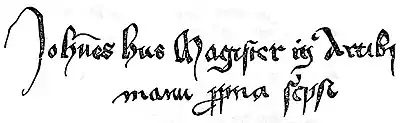 Johānes hus Magister in Artibꝰ
manu ꝓpria sc͛psi